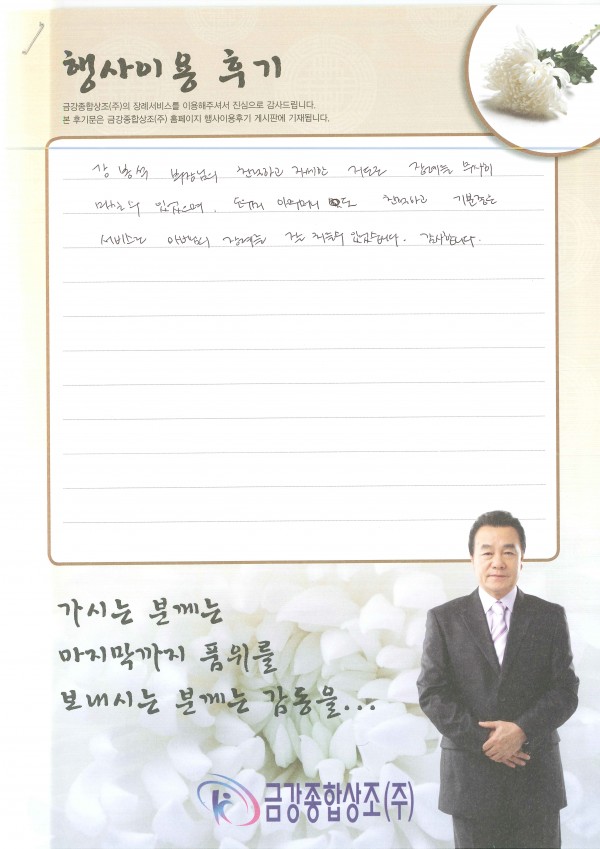 행사이용 후기
금강종합상조(주)의 장례서비스를 이용해주셔서 진심으로 감사드립니다.
본 후기문은 금강종합상조(주) 홈페이지 행사이용후기 게시판에 기재됩니다.
강봉석 친절하고 자세한 지도로 장례를 무사히
마칠 수 있었으며, 친절하고 기분좋은
서비스로 아버님의 장례를 잘 치를 수 있었습니다. 감사합니다.
가시는 분께는
마지막까지 품위를
보내시는 분께는 감동을...
금강종합상조(주)